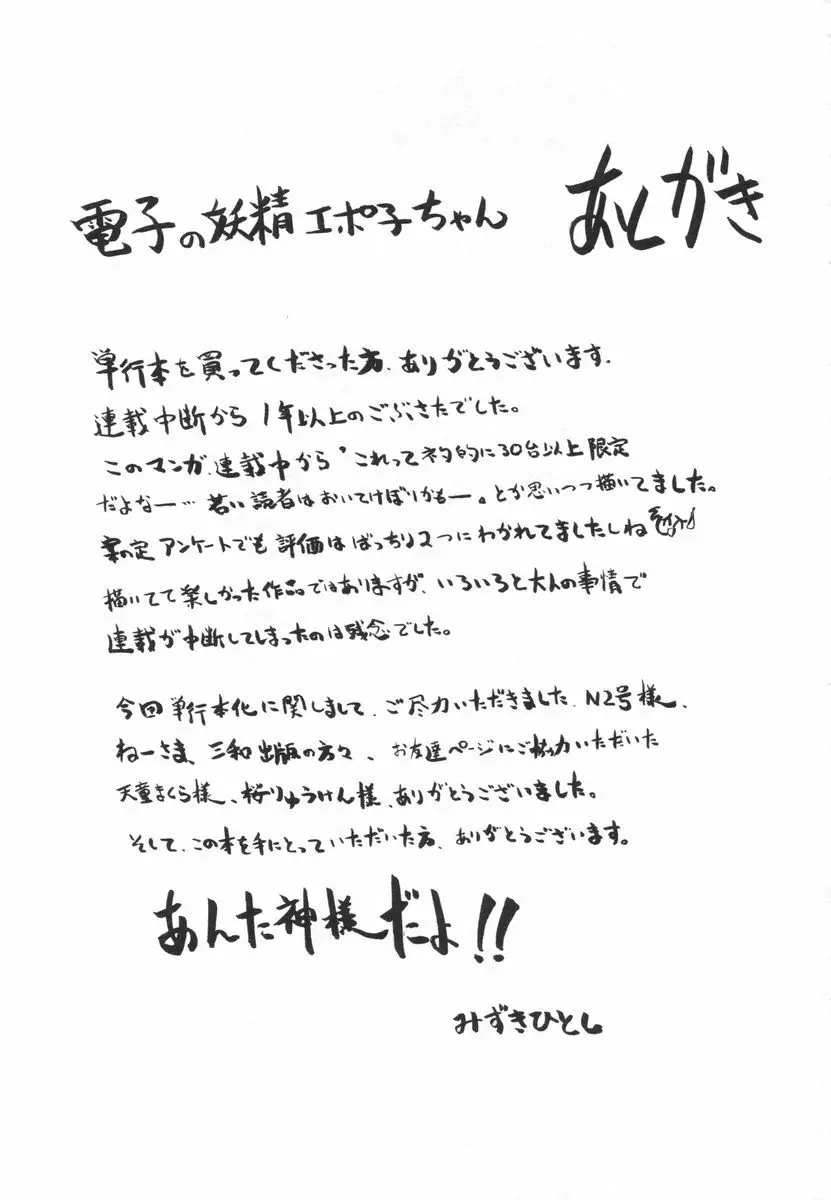 電子の妖精エポ子ちゃん あとがき
単行本を買ってくださった方、ありがとうございます。
連載中断から1年以上のごぶさたでした。
このマンガ、連載中から"これってネタ的に30台以上限定
だよなー…若い読者はおいてけぼりかもー。とか思いつつ描いてました。
案の定アンケートでも評価はばっちり2つにわかれてましたしね
描いてて楽しかった作品ではありますが、いろいろと大人の事情で
連載が中断してしまったのは残念でした。
今回単行本化に関しまして、ご尽力いただきました、N2号様、
ねーさま、三和出版の方々、お友達ページにご協力いただいた
天童まくら様、桜りゅうけん様、ありがとうございました。
そして、この本を手にとっていただいた方、ありがとうございます。
あんた神様だよ!!
みずきひとし